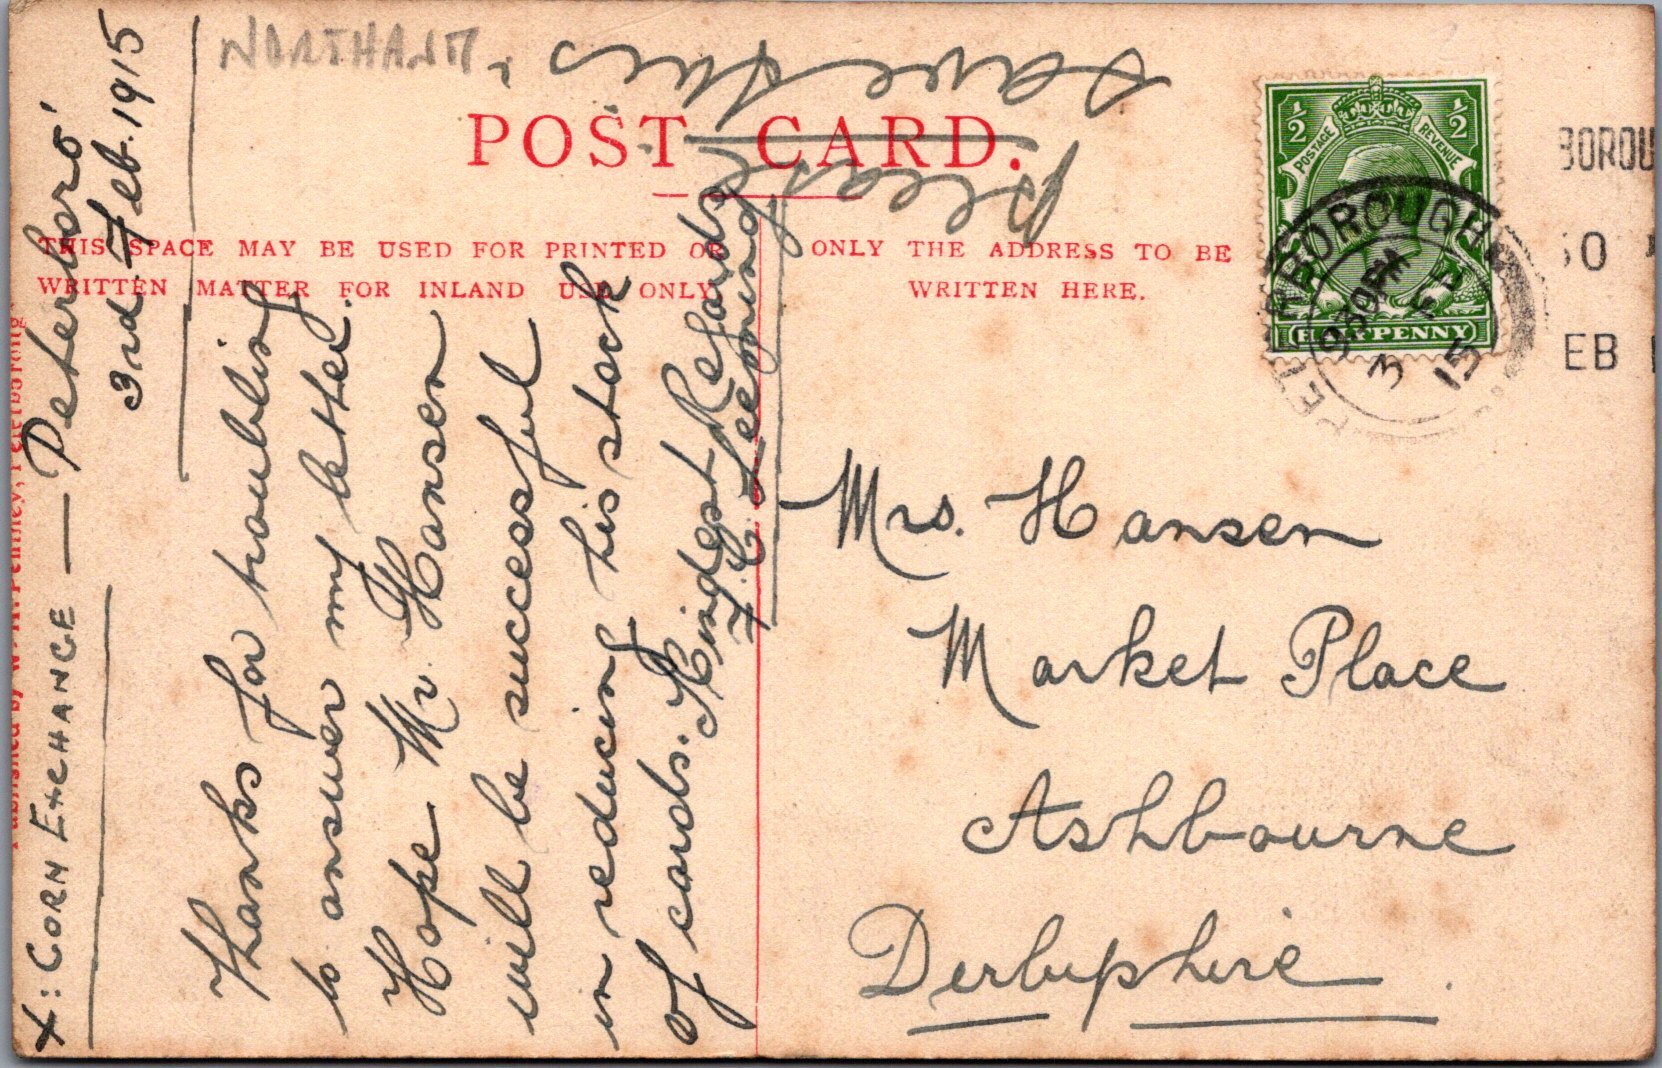 NORTHANT.
please
save this
POST CARD.
THIS SPACE MAY BE USED FOR PRINTED OR
WRITTEN MATTER FOR INLAND USE ONLY.
ONLY THE ADDRESS TO BE
WRITTEN HERE.
Published by W. H. Pentney, Peterborough
X: CORN EXCHANGE — Peterboro'
3rd Feb. 1915
Thanks for troubling
to answer my letter.
Hope Mr. Hansen
will be successful
in reducing his stock
of cards. Kindest Regards
F. C. Leeming
½ ½
POSTAGE REVENUE
HALFPENNY
PETERBOROUGH
9 30 PM
3 FE
15
BOROU
30
EB
Mrs. Hansen
Market Place
Ashbourne
Derbyshire.